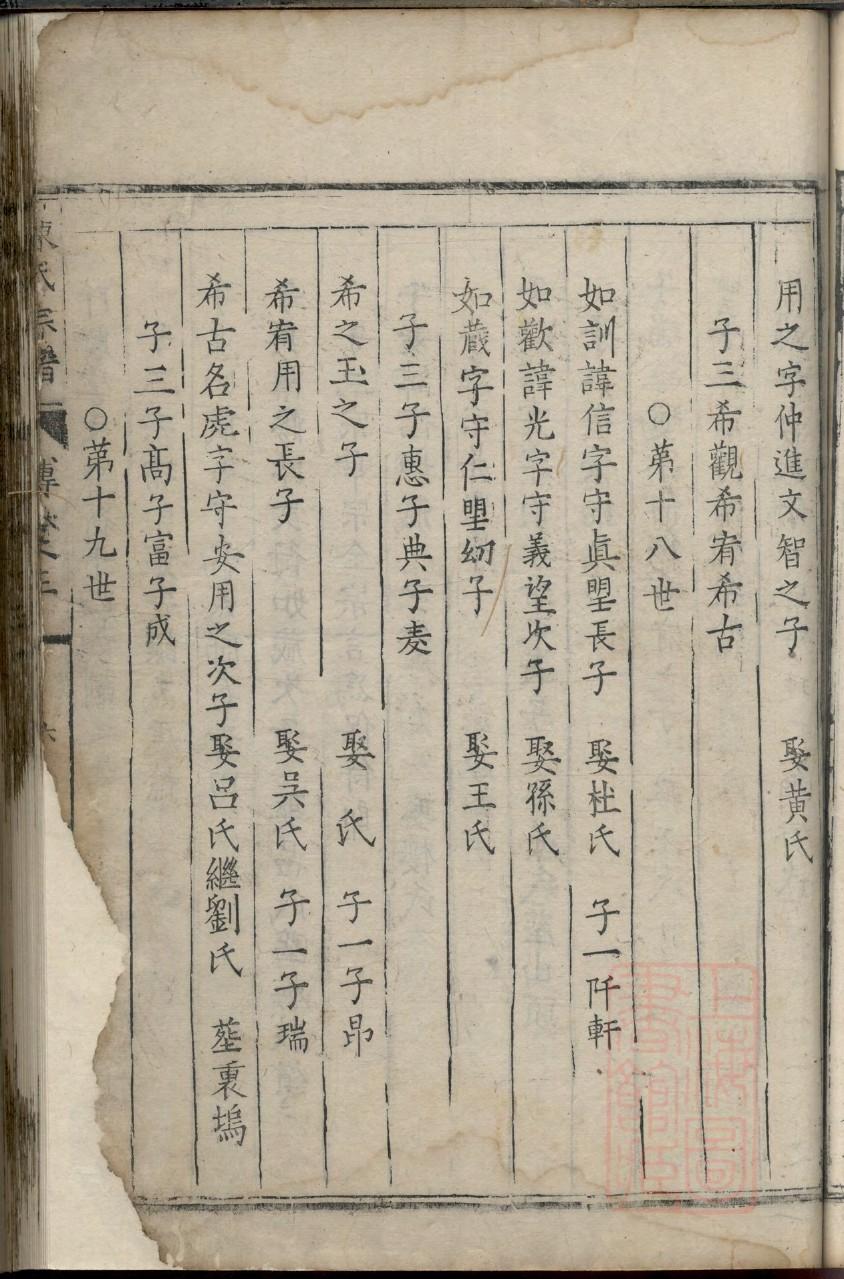 用之字仲進文智之子 娶黄氏
子三希觀希宥希古
○第十八世
如訓諱信字守眞朢長子 娶杜氏 子一阡軒
如歡諱光字守義望次子 娶孫氏
如蕆字守仁朢㓜子 娶王氏
子三子惠子典子麦
希之玉之子 娶 氏 子一子昂
希宥用之長子 娶吳氏 子一子瑞
希古名虎字守安用之次子娶吕氏繼劉氏 塟裏塢
子三子髙子富子成
○第十九世
氏宗譜
上海圖書館藏